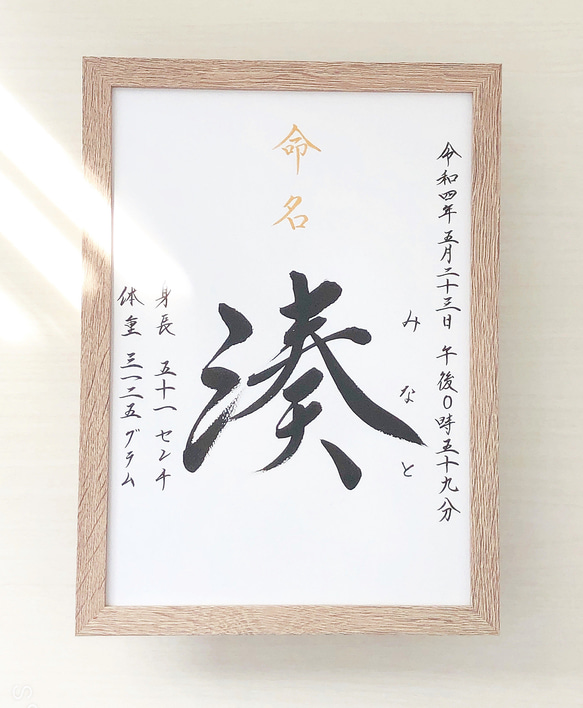 命名
令和四年 五月二十三日 午後0時五十九分
みなと
湊
身長 五十一センチ
体重 三一二五グラム